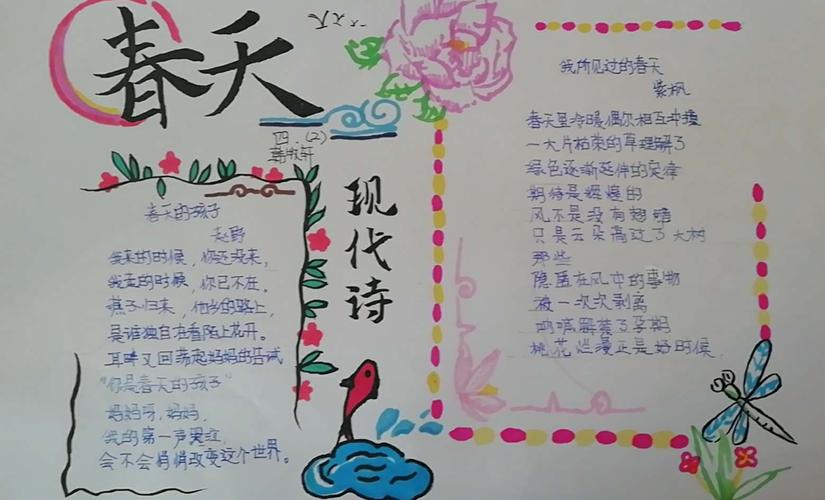 春天
四.(2)
现代诗
春天的孩子
赵野
我来的时候,你还没来,
我走的时候,你已不在。
燕子归来,他乡的路上,
是谁独自在看陌上花开。
耳畔又回荡起妈妈的告诫
"你是春天的孩子"
妈妈呀,妈妈,
我的第一声哭泣,
会不会悄悄改变这个世界。
我所见过的春天
紫枫
春天里冷暖偶尔相互冲撞
一大片枯荣的草理解了
绿色逐渐延伸的定律
期待是辉煌的
风不是没有翅膀
只是云朵高过了大树
那些
隐匿在风中的事物
被一次次剥离
呐喊解禁了孕期
桃花烂漫正是好时候